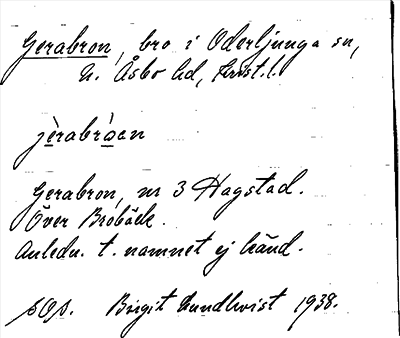 Gerabron, bro i Oderljunga sn,
N. Åsbo hd, Krist. l.
jèrabråan
Gerabron, nr 3 Hagstad.
Över Bröbäck.
Anledn. t. namnet ej känd.
Birgit Lundkvist 1938.